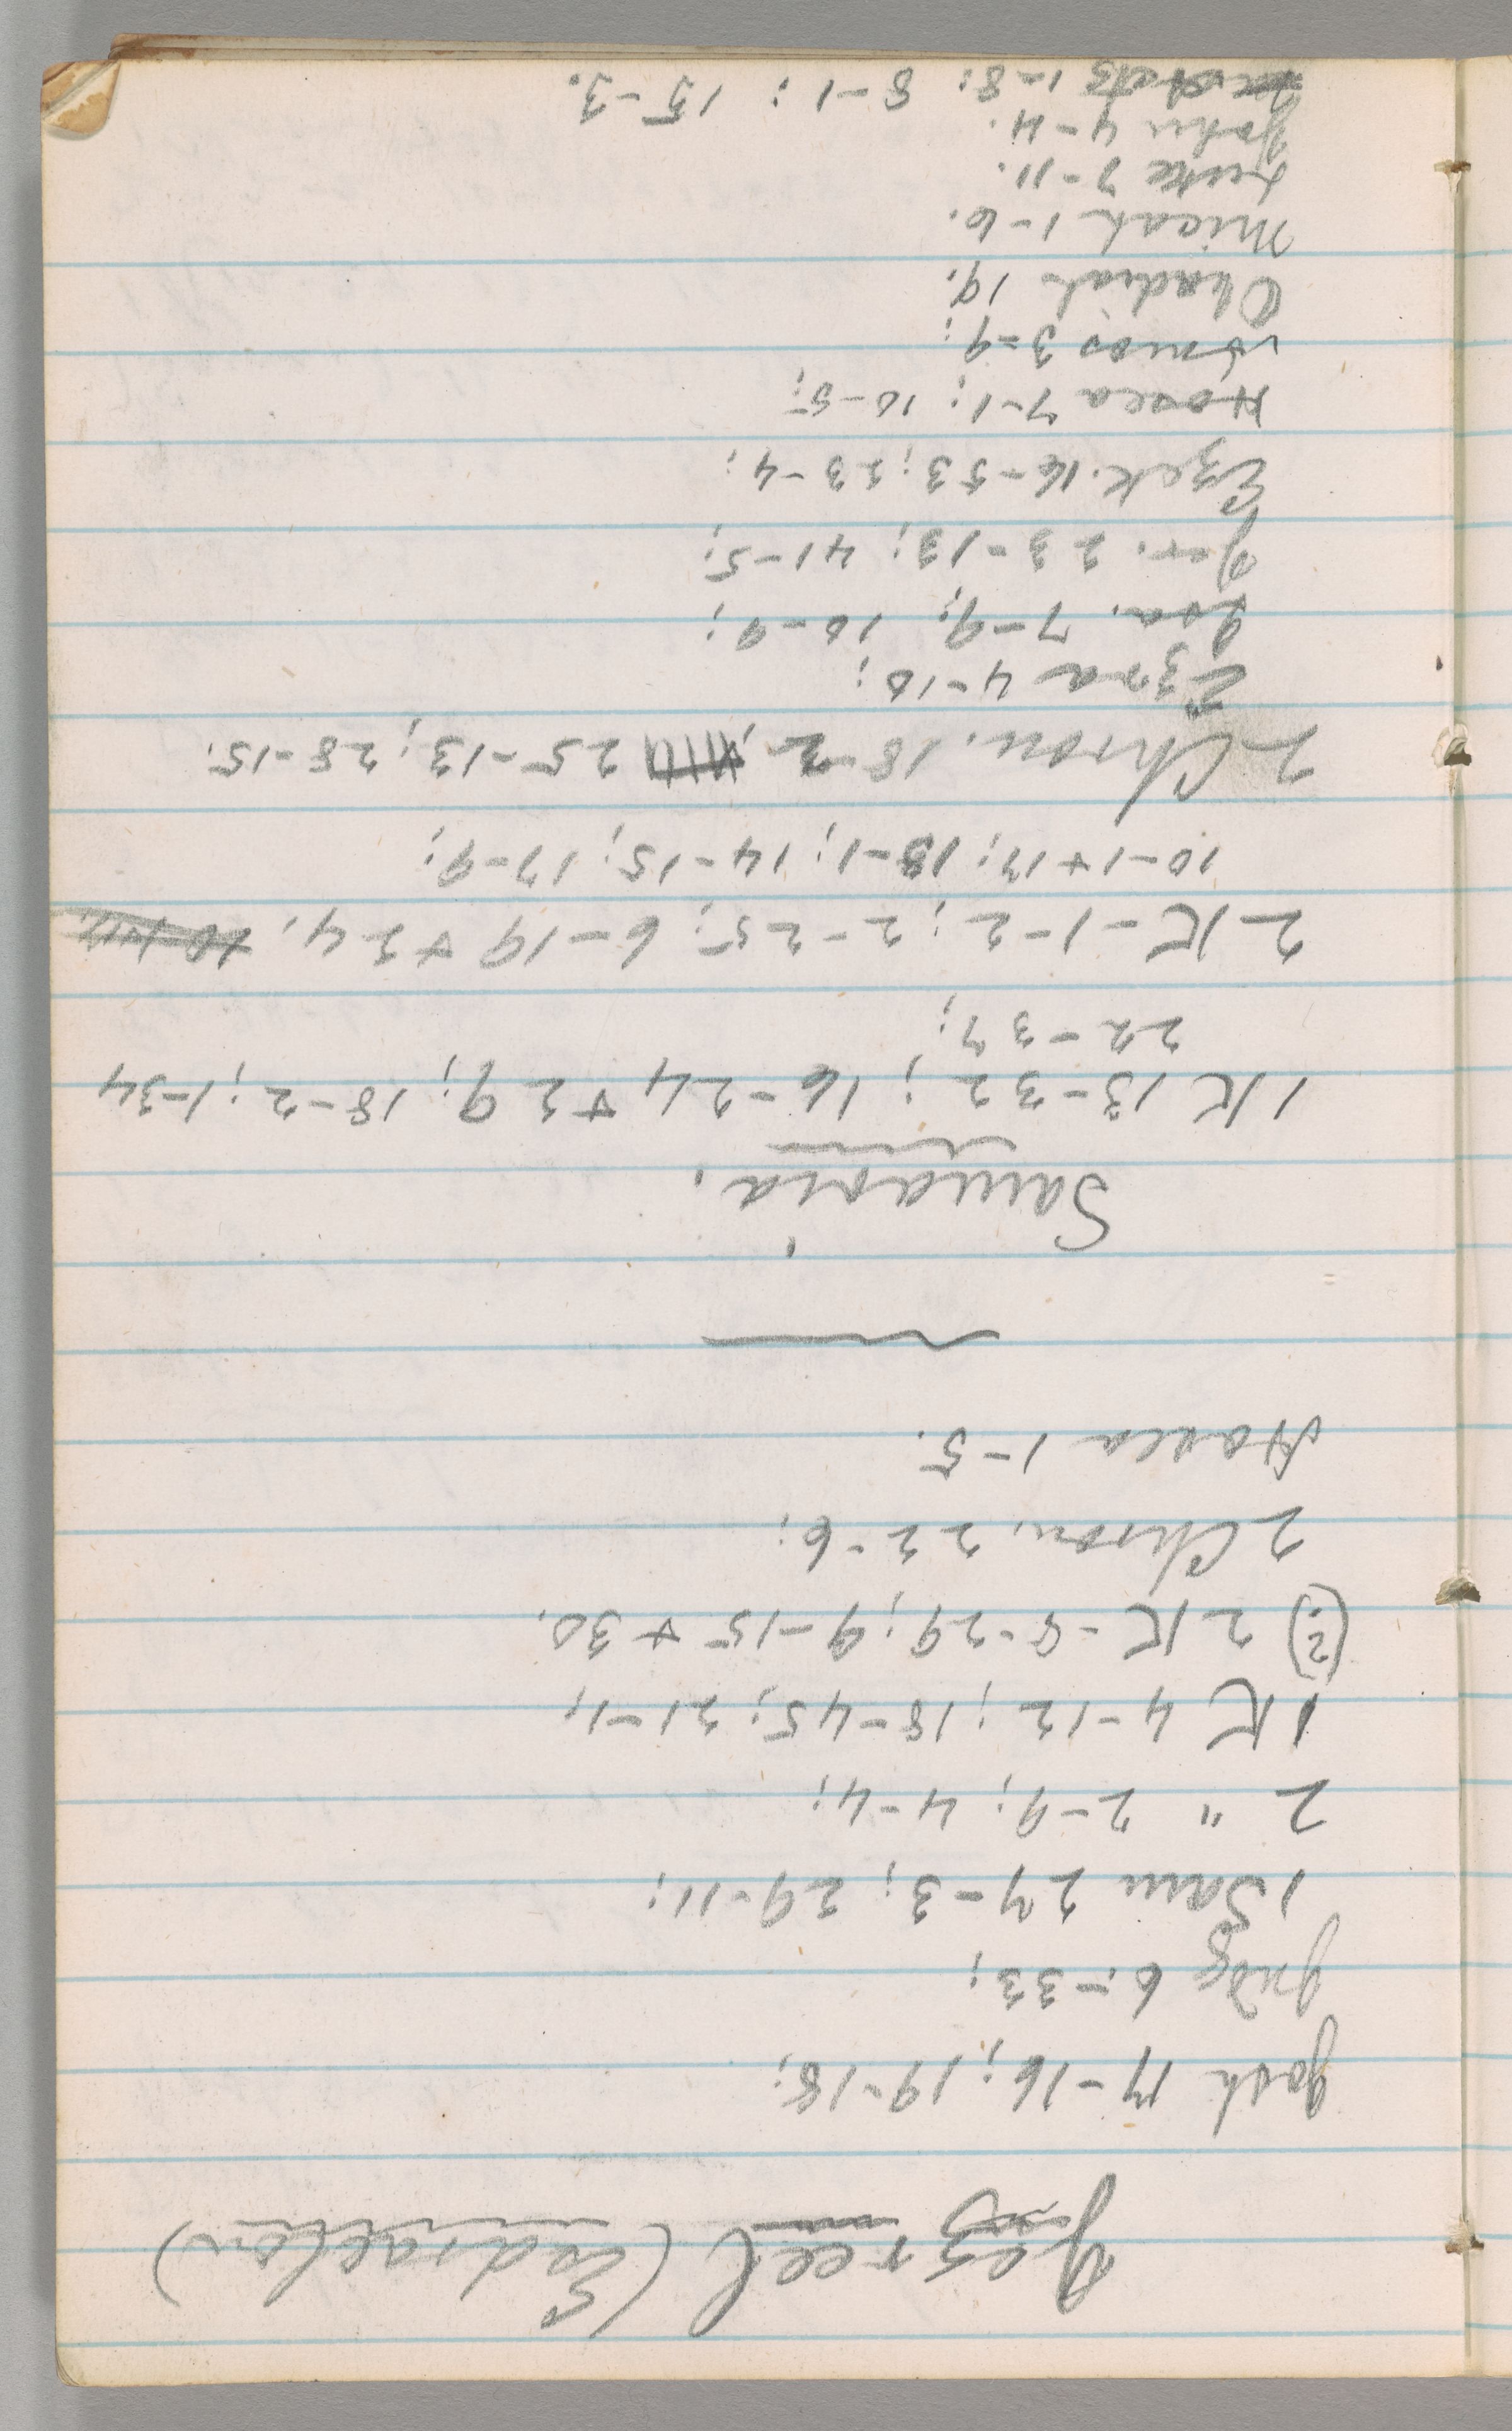 Jezreel (Esdraelon)
Josh 17-16; 19-18;
Judg 6-33;
1 Sam 27-3; 29-11;
2 " 2-9; 4-4;
1 K 4-12; 18-45; 21-1;
(2) 2 K - 8-29; 9-15 + 30.
2 Chron. 22-6;
Hosea 1-5.
Samaria.
1 K 13-32; 16-24 + 29; 18-2; 1-34
22-37;
2 K - 1-2; 2-25; 6-19 + 24;
10-1 + 17; 13-1; 14-15; 17-9;
2 Chron. 18-2; 25-13; 28-15;
Ezra 4-10;
Isa. 7-9; 10-9;
Jer. 23-13; 41-5;
Ezek. 16-53; 23-4;
Hosea 7-1; 10-5;
Amos 3-9;
Obadiah 19;
Micah 1-6.
Luke 7-11.
John 4-4.
Acts 1-8; 8-1; 15-3.